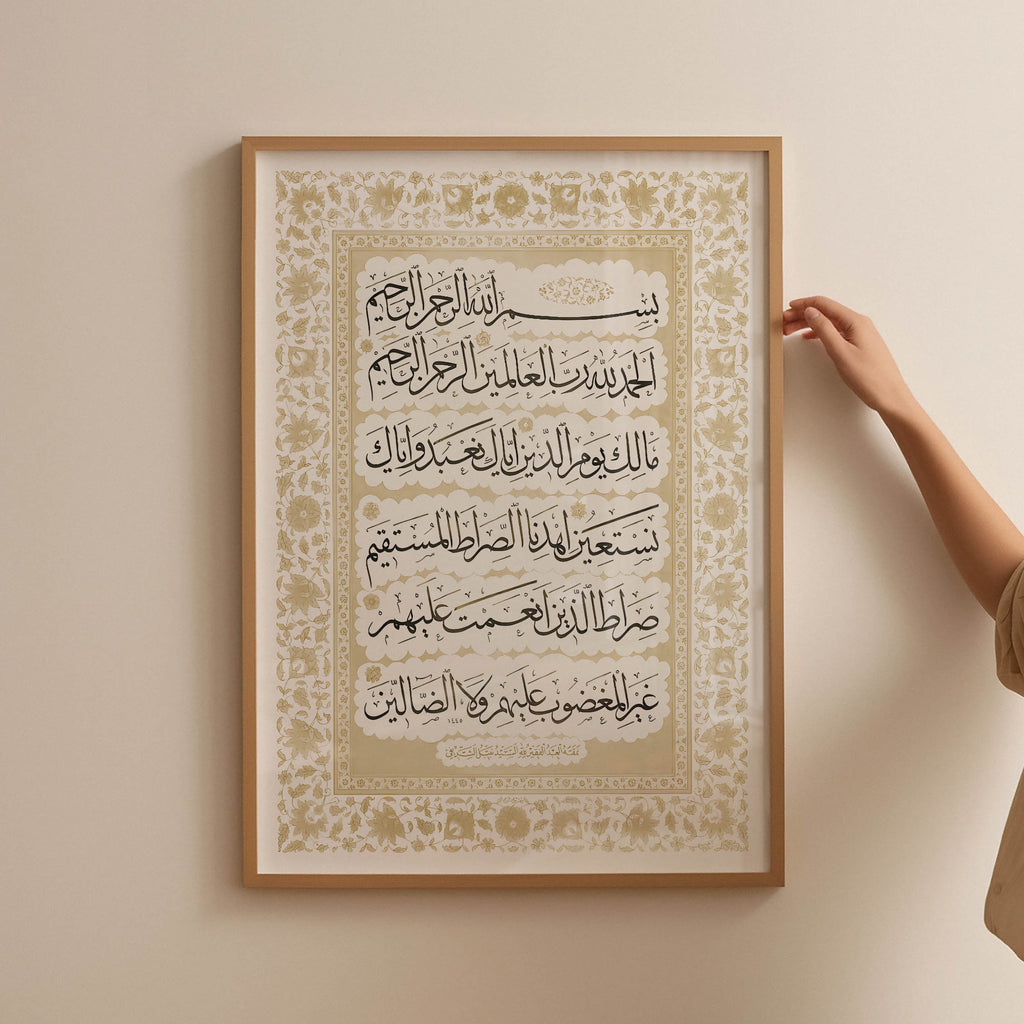 بِسْمِ اللَّهِ الرَّحْمٰنِ الرَّحِيْمِ
اَلْحَمْدُ لِلَّهِ رَبِّ الْعَالَمِيْنَ الرَّحْمٰنِ الرَّحِيْمِ
مَالِكِ يَوْمِ الدِّيْنِ اِيَّاكَ نَعْبُدُ وَاِيَّاكَ
نَسْتَعِيْنُ اِهْدِنَا الصِّرَاطَ الْمُسْتَقِيْمَ
صِرَاطَ الَّذِيْنَ اَنْعَمْتَ عَلَيْهِمْ
غَيْرِ الْمَغْضُوْبِ عَلَيْهِمْ وَلَا الضَّالِّيْنَ
١٤٤٥
العبد الفقير لله